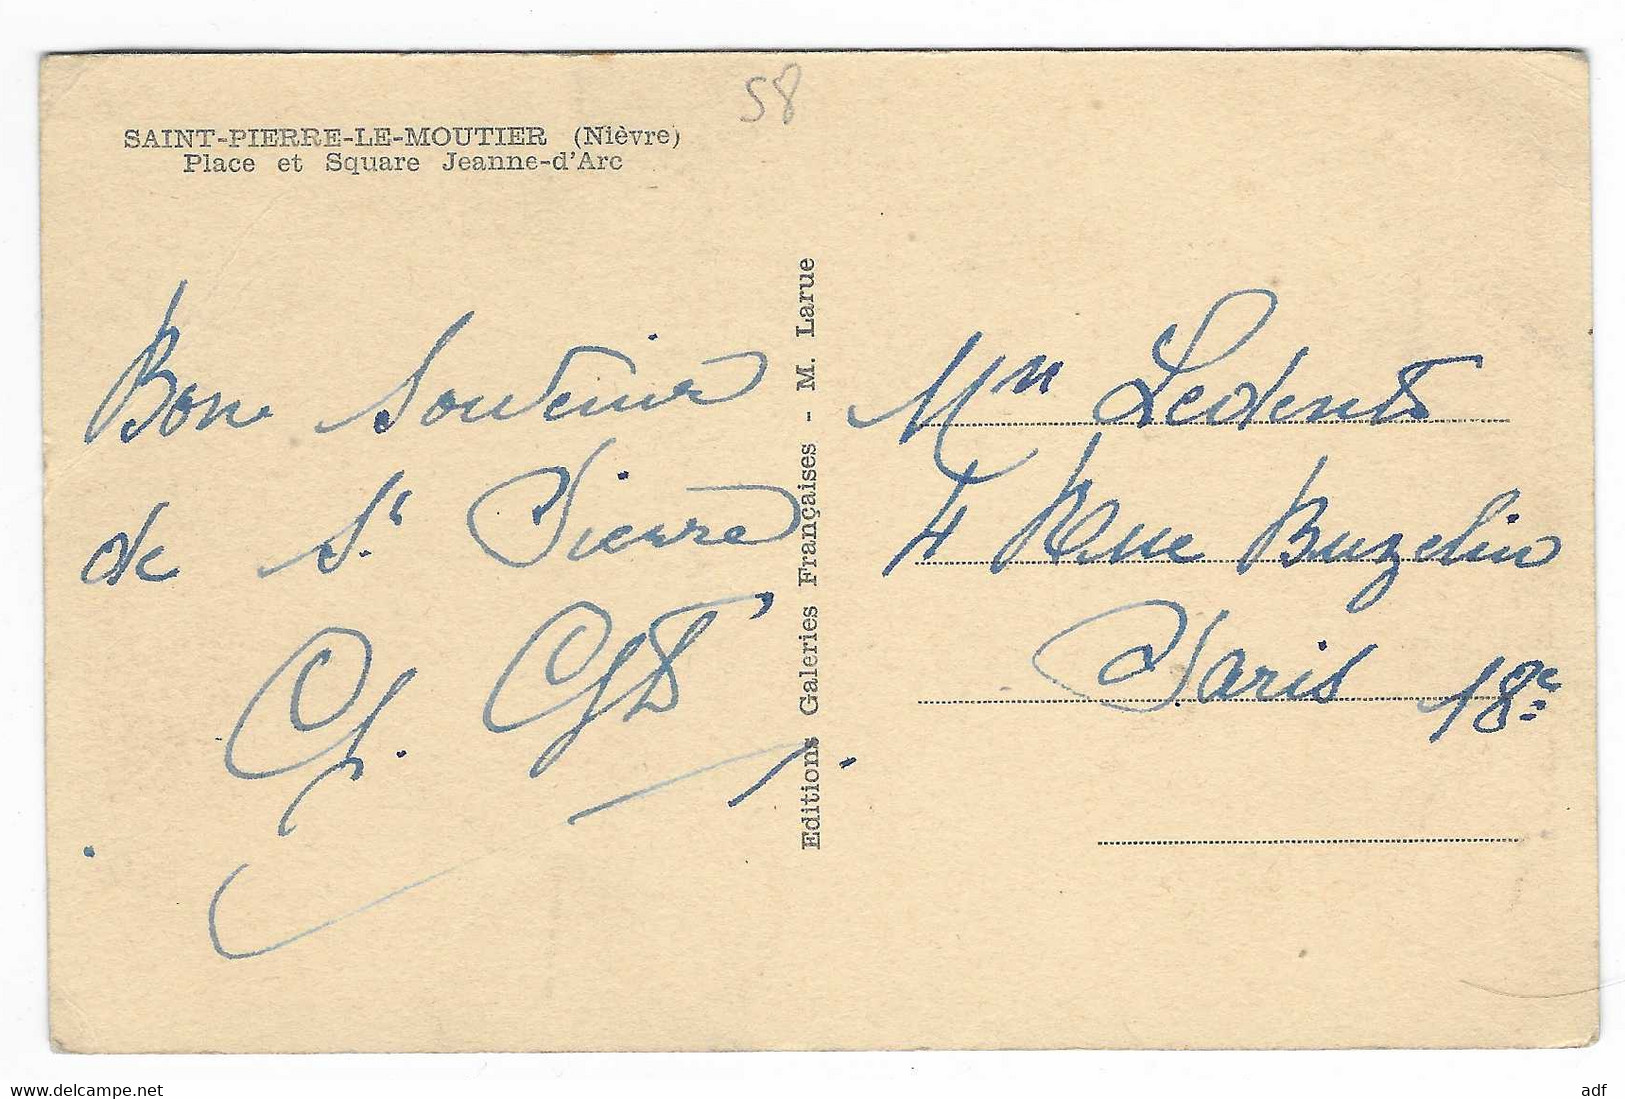 58
SAINT-PIERRE-LE-MOUTIER (Nièvre)
Place et Square Jeanne-d'Arc
Bon Souvenir
de St Pierre
Editions Galeries Françaises - M. Larue
4 Rue Buzelin
Paris 18e
www.delcampe.net
adf